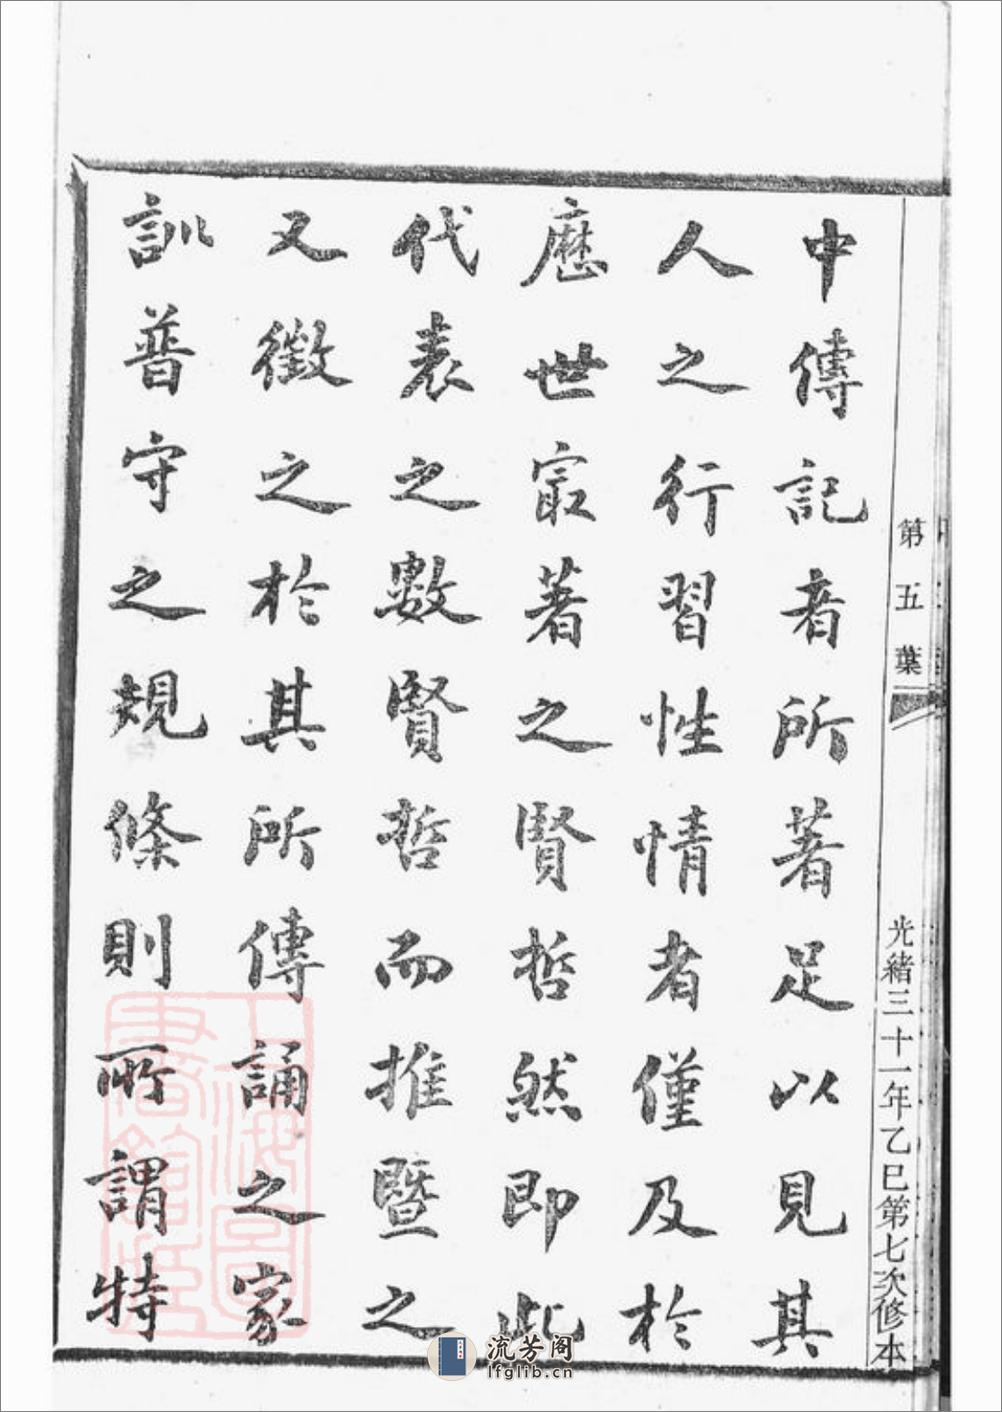 中傳記者所著足以見其
人之行習性情者僅及於
歷世冣著之賢哲然即此
代表之數賢哲而推暨之
又徵之於其所傳誦之家
訓普守之規條則所謂特
第五葉
光緒三十一年乙巳第七次修本
上海圖書館藏
流芳阁
lfglib.cn